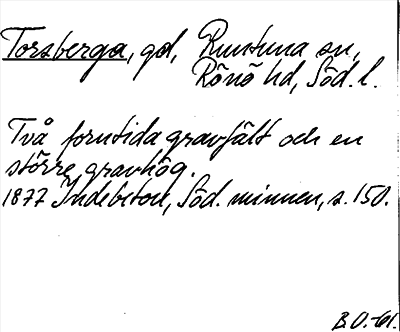 Torsberga, gd, Runtuna sn,
Rönö hd, Söd. l.
Två forntida gravfält och en
större gravhög.
1877 Indebetou, Söd. minnen, s. 150.
B.O.-61.